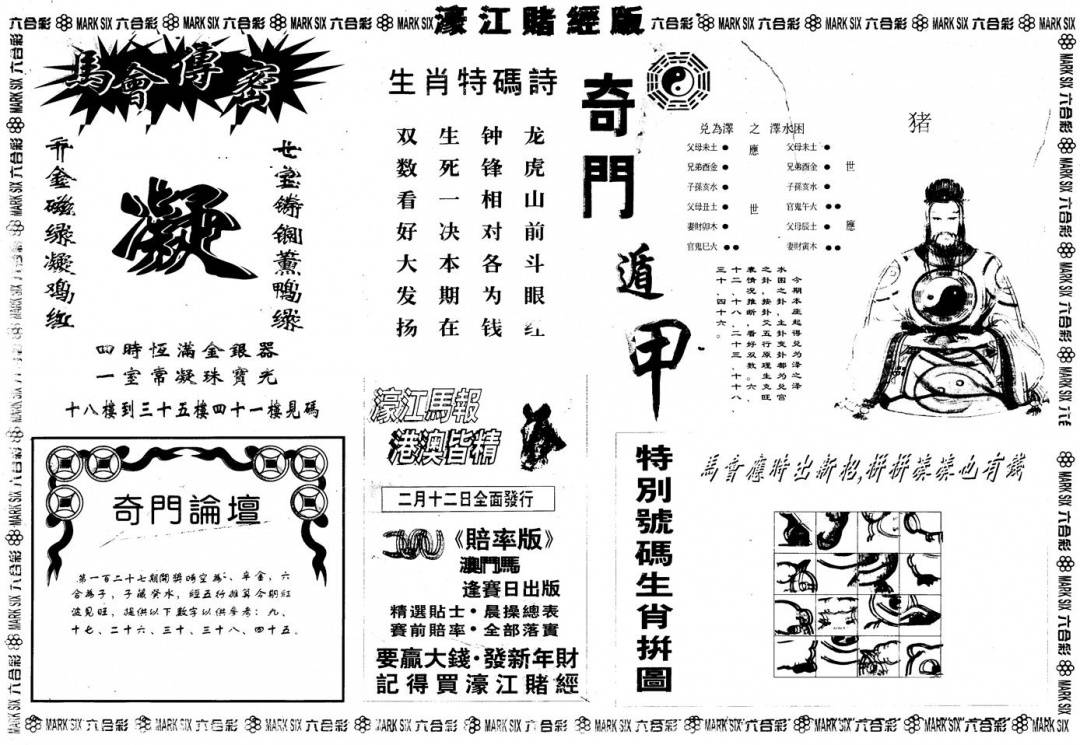 濠江賭經版
六合彩 MARK SIX 六合彩 MARK SIX 六合彩 MARK SIX 六合彩 MARK SIX
六合彩 MARK SIX 六合彩 MARK SIX 六合彩 MARK SIX 六合彩 MARK SIX
馬會傳密
凝
四時恆滿金銀器
一室常凝珠寶光
十八樓到三十五樓四十一樓見碼
奇門論壇
第一百二十七期開獎時空為、辛金，六
合為子，子藏癸水，經五行推算今期紅
波見旺，提供以下數字以供參考：九、
十七、二十六、三十、三十八、四十五。
生肖特碼詩
龙虎山前斗眼红
钟锋相对各为钱
生死一决本期在
双数看好大发扬
濠江馬報
港澳皆精
二月十二日全面發行
《賠率版》
澳門馬
逢賽日出版
精選貼士·晨操總表
賽前賠率·全部落實
要贏大錢·發新年財
記得買濠江賭經
奇門遁甲
兑為澤 之 澤水困
父母未土 應 父母未土
兄弟酉金 兄弟酉金 世
子孫亥水 子孫亥水
父母丑土 世 官鬼午火
妻財卯木 父母辰土 應
官鬼巳火 妻財寅木
今期本座起得兑为泽之泽
水困之卦，主卦变卦都为兑宫
之卦，按卦爻五行原理生克旺
衰情况推断，看好双数。六
十二、十八、二十三、十十八
三十、四十六。
猪
特別號碼生肖拼圖
馬會應時出新招，拼拼湊湊也有錢